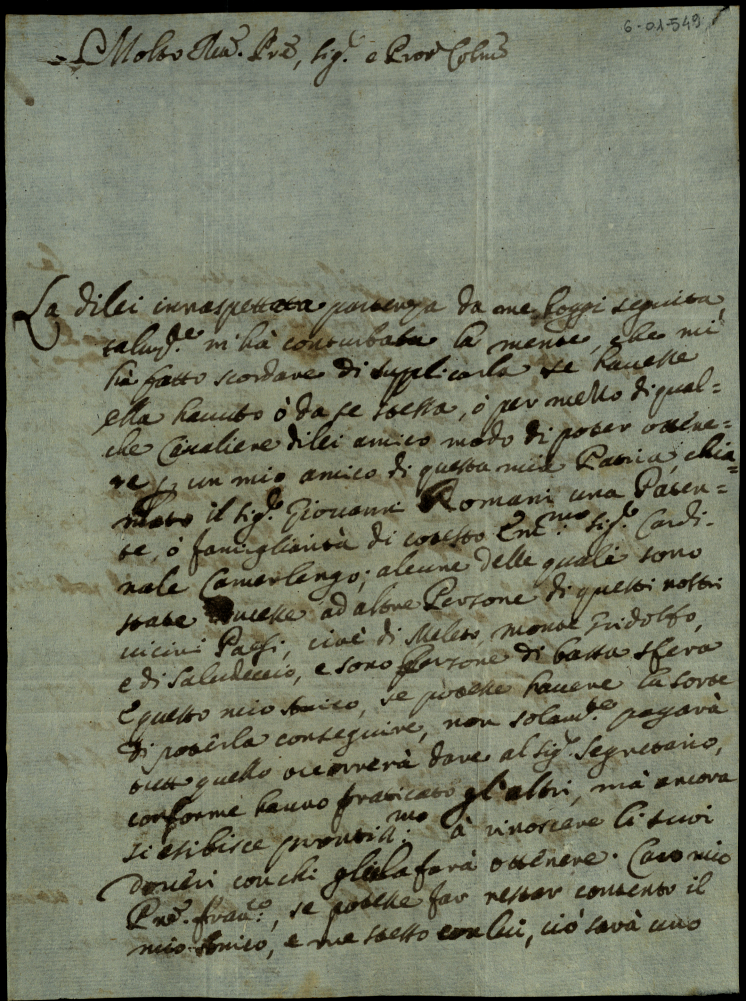 6-01-549
Molto Reu.do Pre, Sig.r e Pron Colmo
La dilei innaspettata partenza da me hoggi seguita,
talm.te m'hà conturbata la mente, che mi
hà fatto scordare di supplicarla se hauesse
ella hauuto ò da se stessa, ò per mezzo di qual=
che Caualiere dilei amico modo di poter ottene=
re p. un mio amico di questa mia Patria, chia=
mato il Sig.r Giouanni Romani una Paten=
te, ò famigliarità di cotesto Em.mo Sig.r Cardi=
nale Camerlengo; alcune delle quali sono
state concesse ad altre Persone di questi nostri
uicini Paesi, cioè di Meleto, Monte Gridolfo,
e di Saludeccio, e sono persone di bassa sfera
E questo mio Amico, se potesse hauere la sorte
di poterla conseguire, non solam.te pagarà
tutto quello occorrerà dare al Sig.r Segretario,
conforme hanno praticato gl'altri, mà ancora
si esibisce prontiss.mo à
li suoi
doueri con chi gliela farà ottenere. Caro mio
Pre. Fran.co, se potesse far restar contento il
mio Amico, e me stesso con lui, ciò sarà uno